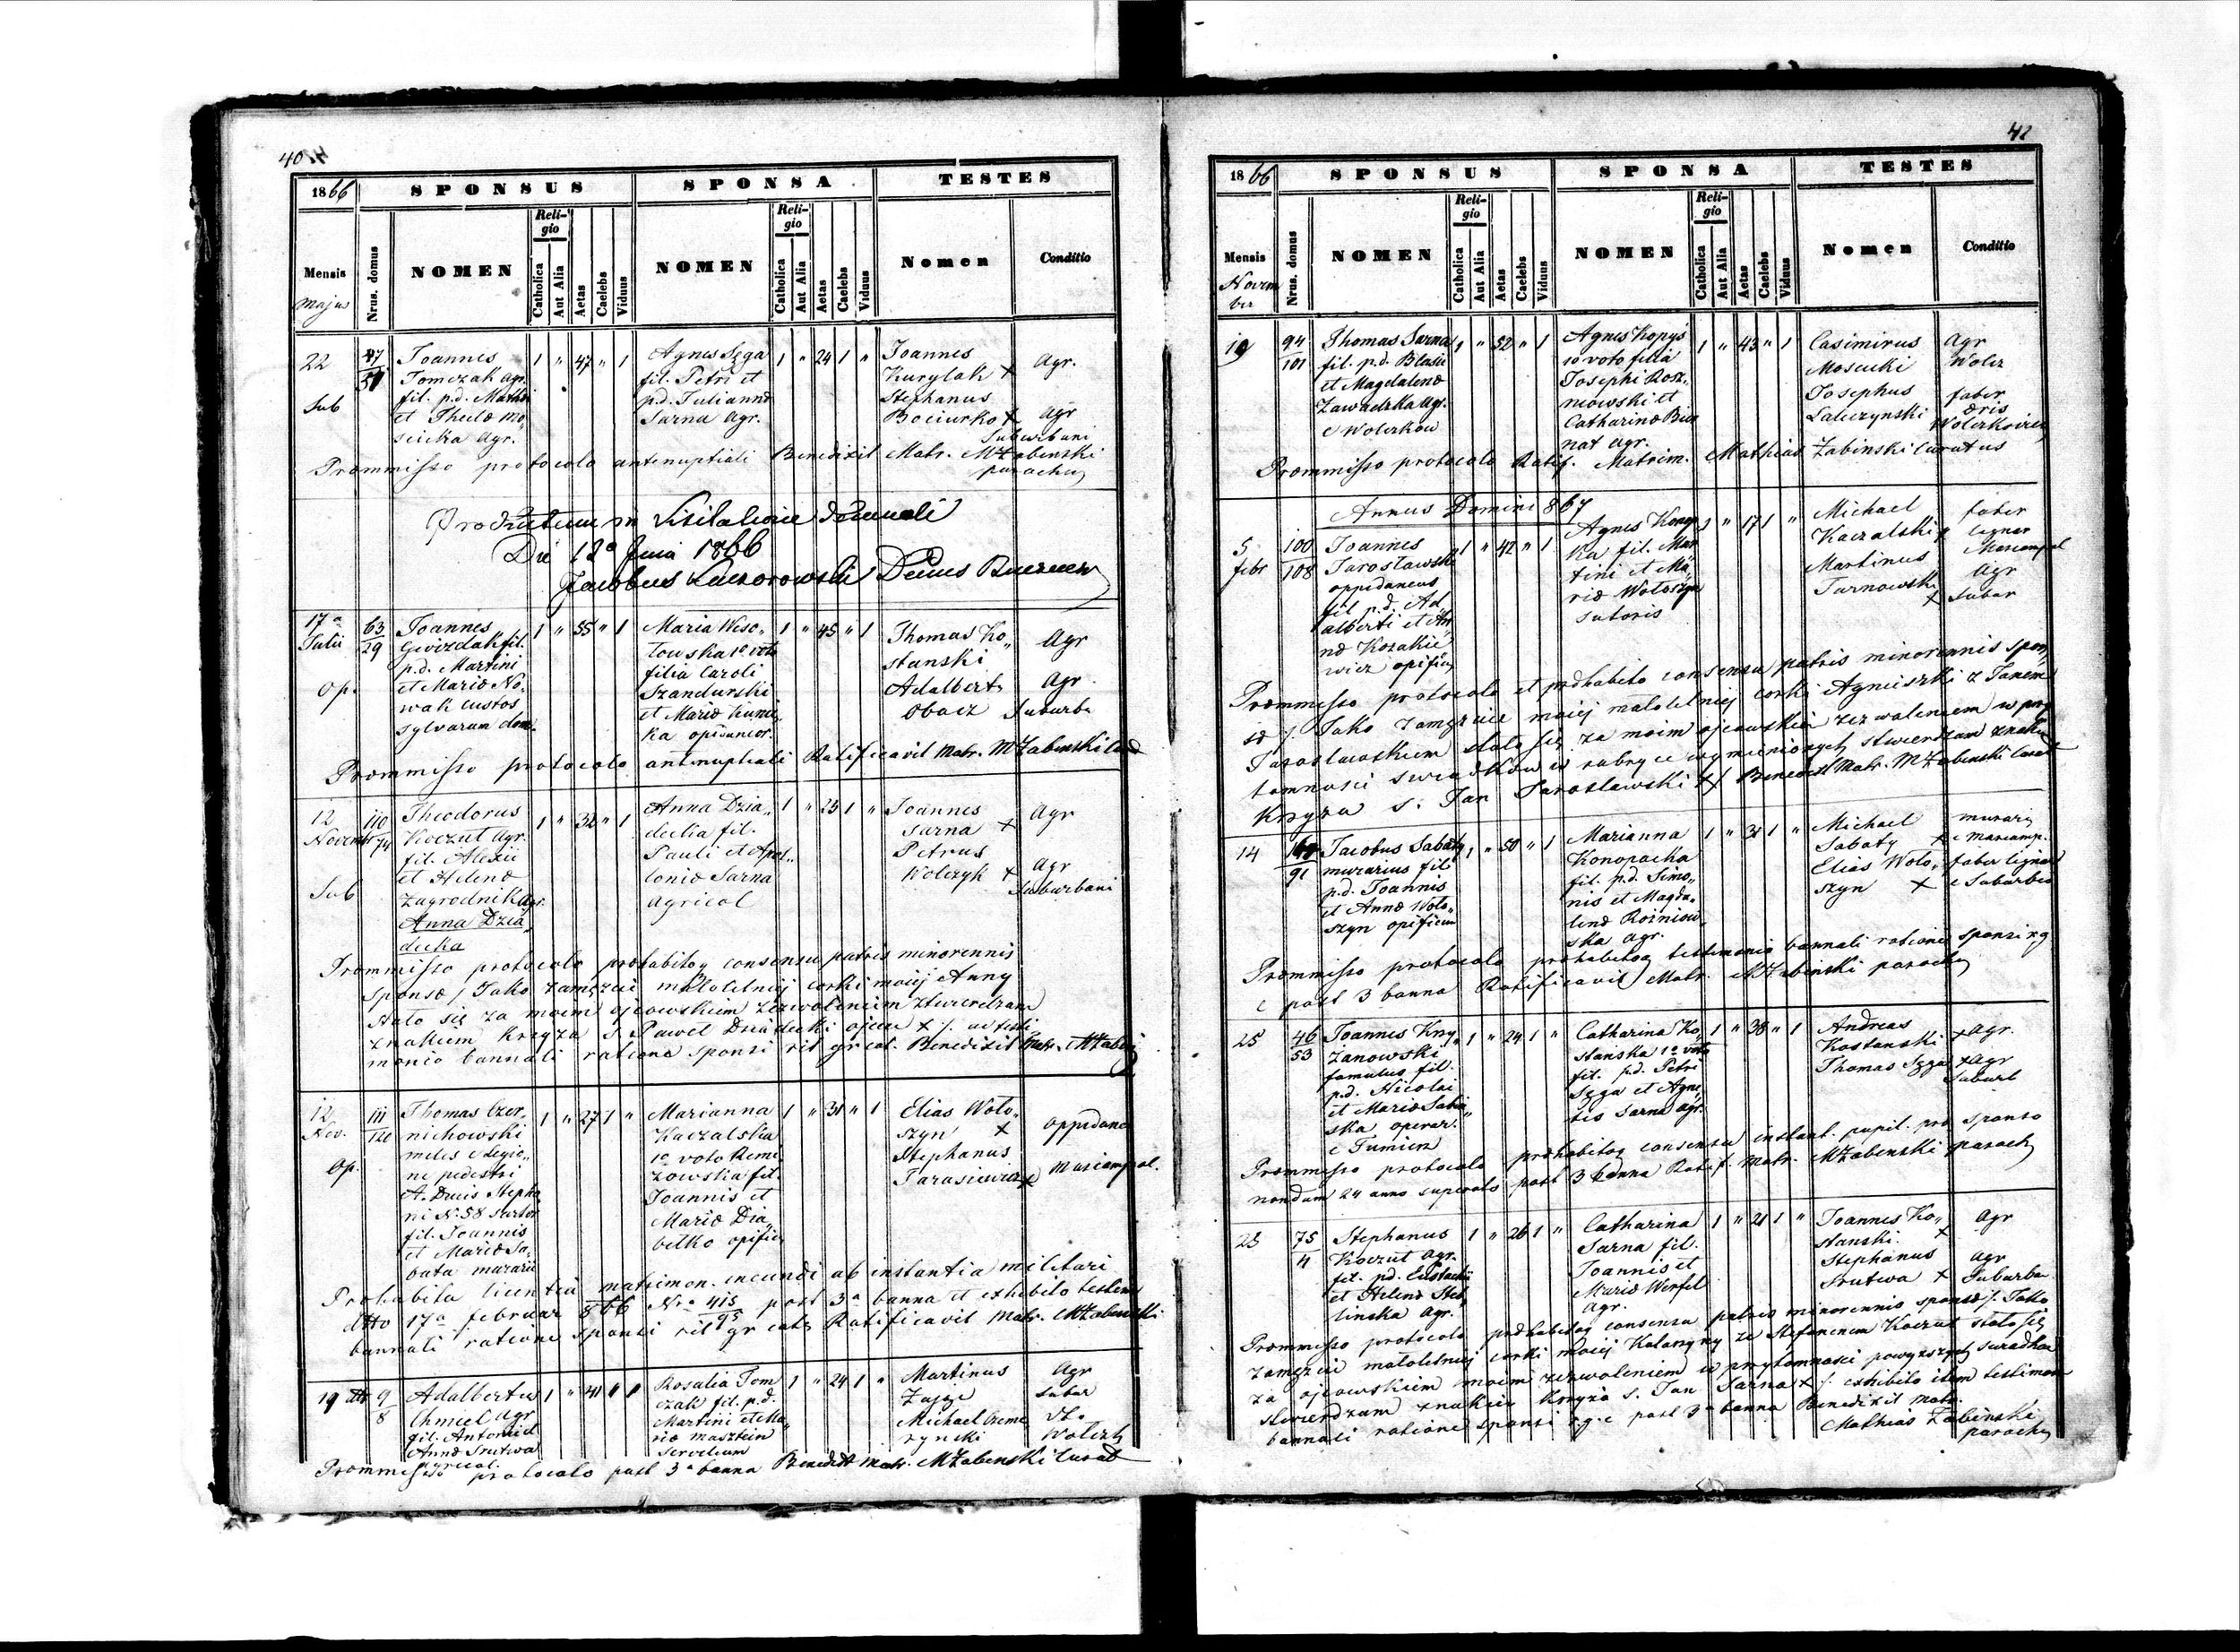 40
1866
SPONSUS
SPONSA
TESTES
Mensis
majus
Nrus. domus
NOMEN
Reli-
gio
Catholica
Aut Alia
Aetas
Caelebs
Viduus
NOMEN
Reli-
gio
Catholica
Aut Alia
Aetas
Caelebs
Viduus
Nomen
Conditio
22
Sub
47
51
Joannes
Tomczak agr.
fil. p.d. Mathi
et Theclo Mo
scicka agr.
1 " 47 " 1
Agnes Sęga
fil. Petri et
p.d. Julianno
Sarna agr.
1 " 24 1 "
Joannes
Kurylak +
Stephanus
Bociurko +
Agr.
Agr
Suburbani
Prommisso protocolo antenuptiali Benedixit Matr. MZabinski
parochus
Productum in Visitatione decanali
Die 12a Junii 1866
Jacobus
17a
Julii
Op.
63
29
Joannes
Gwizdak fil.
p.d. Martini
et Mario No,,
wak custos
sylvarum dom.
1 " 55 " 1
Maria Weso,,
lowska 1o voto
filia Caroli
Szandurski
et Mario Kunic,,
ka opidaneor.
1 " 45 " 1
Thomas Ko,,
stanski
Adalbert,
Obacz
Agr
Agr.
Suburba
Prommisso protocolo antenuptiali Ratificavit Matr. MZabinski Curat
12
Novemb
Sub
110
74
Theodorus
Koczut Agr.
fil. Alexii
et Heleno
Zagrodnik Agr.
Anna Dzia,,
decka
1 " 32 " 1
Anna Dzia,,
decka fil.
Pauli et Apol,,
lonio Sarna
agricol
1 " 23 1 "
Joannes
Sarna +
Petrus
Wolczyk +
Agr
Agr
Suburbani
Prommisso protocolo prohabitoq consensu patris minorennis
sponso / Jako zamęzcie maloletniej corki moiej Anny
stalo się za moiem ojcowskiem zezwoleniem ztwierdzam
znakiem krzyza S. Pawel Dziadecki ojciec + /. ac testi,,
monio bannali ratione sponsi rit. gr. cat. Benedixit Matr. MZabin
12
Nov.
Op.
111
120
Thomas Czer,,
nichowski
miles e legio,,
ne pedestri
A. Ducis Stepha
ni N. 58 sartor
fil. Joannis
et Mario Sa,,
bata murarii
1 " 27 1 "
Marianna
Kaczalska
1o voto Reme
zowska fil.
Joannis et
Mario Dia,,
belko opific
1 " 31 " 1
Elias Wolo,,
szyn +
Stephanus
Tarasiewicz +
Oppidane
Mariampol.
Prohabita licentia matrimon. ineundi ab instantia militari
dtto 17a februar 866 Nro 415/95 post 3a banna et exhibito testem
bannali ratione sponsi rit gr cath Ratificavit Matr. MZabinski
19 dtto
9
8
Adalbertus
Chmiel Agr
fil. Antonii et
Anno Srutwa
agricol.
1 " 41 " 1
Rosalia Tom
czak fil. p.d.
Martini et Ma,,
rio Masztein
servilium
1 " 24 1 "
Martinus
Zając
Michael Czeme
rynski
Agr
Subur
dt.
Wolczk
Prommisso protocolo post 3a banna Benedixit Matr. MZabinski Curat
42
1866
SPONSUS
SPONSA
TESTES
Mensis
Novem
ber
Nrus. domus
NOMEN
Reli-
gio
Catholica
Aut Alia
Aetas
Caelebs
Viduus
NOMEN
Reli-
gio
Catholica
Aut Alia
Aetas
Caelebs
Viduus
Nomen
Conditio
19
94
101
Thomas Sarna
fil. p.d. Blasii
et Magdaleno
Zawadzka agr.
e Wolczkow
1 " 52 " 1
Agnes Kopys
1o voto filia
Josephi Rosz,,
niowski et
Catharino Bier
nat agr.
1 " 43 " 1
Casimirus
Moscicki
Josephus
Saluzynski
Agr
Wolcz
faber
Prommisso protocolo Ratif. Matrim. Mathias Zabinski Curatus
Annus Domini 867
5
febr
100
108
Joannes
Jaroslawski
oppidaneus
fil p.d. Ad,,
alberti et An,,
no Kozakie
wicz opific
1 " 42 " 1
Agnes Konop
ka fil. Mar
tini et Ma,,
rio Woloszyn
sutoris
1 " 17 1 "
Michael
Kaczalski +
Martinus
Tarnowski
+
faber
lignar
Mariampol
Agr
Subur
Prommisso protocolo et prohabito consensu patris minorennis spon,,
so /. Jako zamęzcie moiej maloletniej corki Agnieszki z Janem
Jaroslawskiem stalo się za moim ojcowskiem zezwoleniem w przy
tomnosci swiadkow w rubryce wymienionych stwierdzam znakiem
krzyza S. Jan Jaroslawski + / Benedixit Matr. MZabinski Curat
14
91
Jacobus Sabaty
murarius fil
p.d. Joannis
et Anno Wolo,,
szyn opificum
1 " 50 " 1
Marianna
Konopacka
fil. p.d. Simo,,
nis et Magda,,
leno Rozniow,,
ska agr.
1 " 31 1 "
Michael
Sabaty +
Elias Wolo,,
szyn +
murari
e Mariamp.
faber lignar
e Suburbio
Prommisso protocolo prohabitoq testimonio bannali ratione sponsi r g
c post 3 banna Ratificavit Matr. MZabinski parochus
25
46
53
Joannes Krzy
zanowski
famulus fil.
p.d. Nicolai
et Mario Sabi,,
ska operar.
e Tumierz
1 " 24 1 "
Catharina Ko,,
stanska 1o voto
fil. p.d. Petri
Sęga et Agne,,
tis Sarna agr.
1 " 38 " 1
Andreas
Kostanski
Thomas Sęga
+ Agr.
+ Agr
Suburb
Prommisso protocolo prohabitoq consensu instant. pupil. pro sponso
nondum 24 anno superato post 3 banna Ratif. Matr. MZabinski paroch
25
75
4
Stephanus
Koczut agr.
fil. pd. Eustachii
et Heleno Hed,,
linska agr.
1 " 26 1 "
Catharina
Sarna fil.
Joannis et
Mario Werfel
agr.
1 " 21 1 "
Joannes Ko,,
stanski +
Stephanus
Srutwa +
Agr
agr
Suburba
Prommisso protocolo prohabitoq consensu patris minorennis sponso /. Jako
zamęzcie maloletniej corki moiej Katarzyny ze Stefanem Koczut stalo się
za ojcowskiem moiem zezwoleniem w przytomnosci powyzszych swiadkow
stwierdzam znakiem krzyza S. Jan Sarna + /. exhibito item testimon
bannali ratione sponsi r.g.c post 3a banna Benedixit Matr.
Mathias Zabinski
parochus